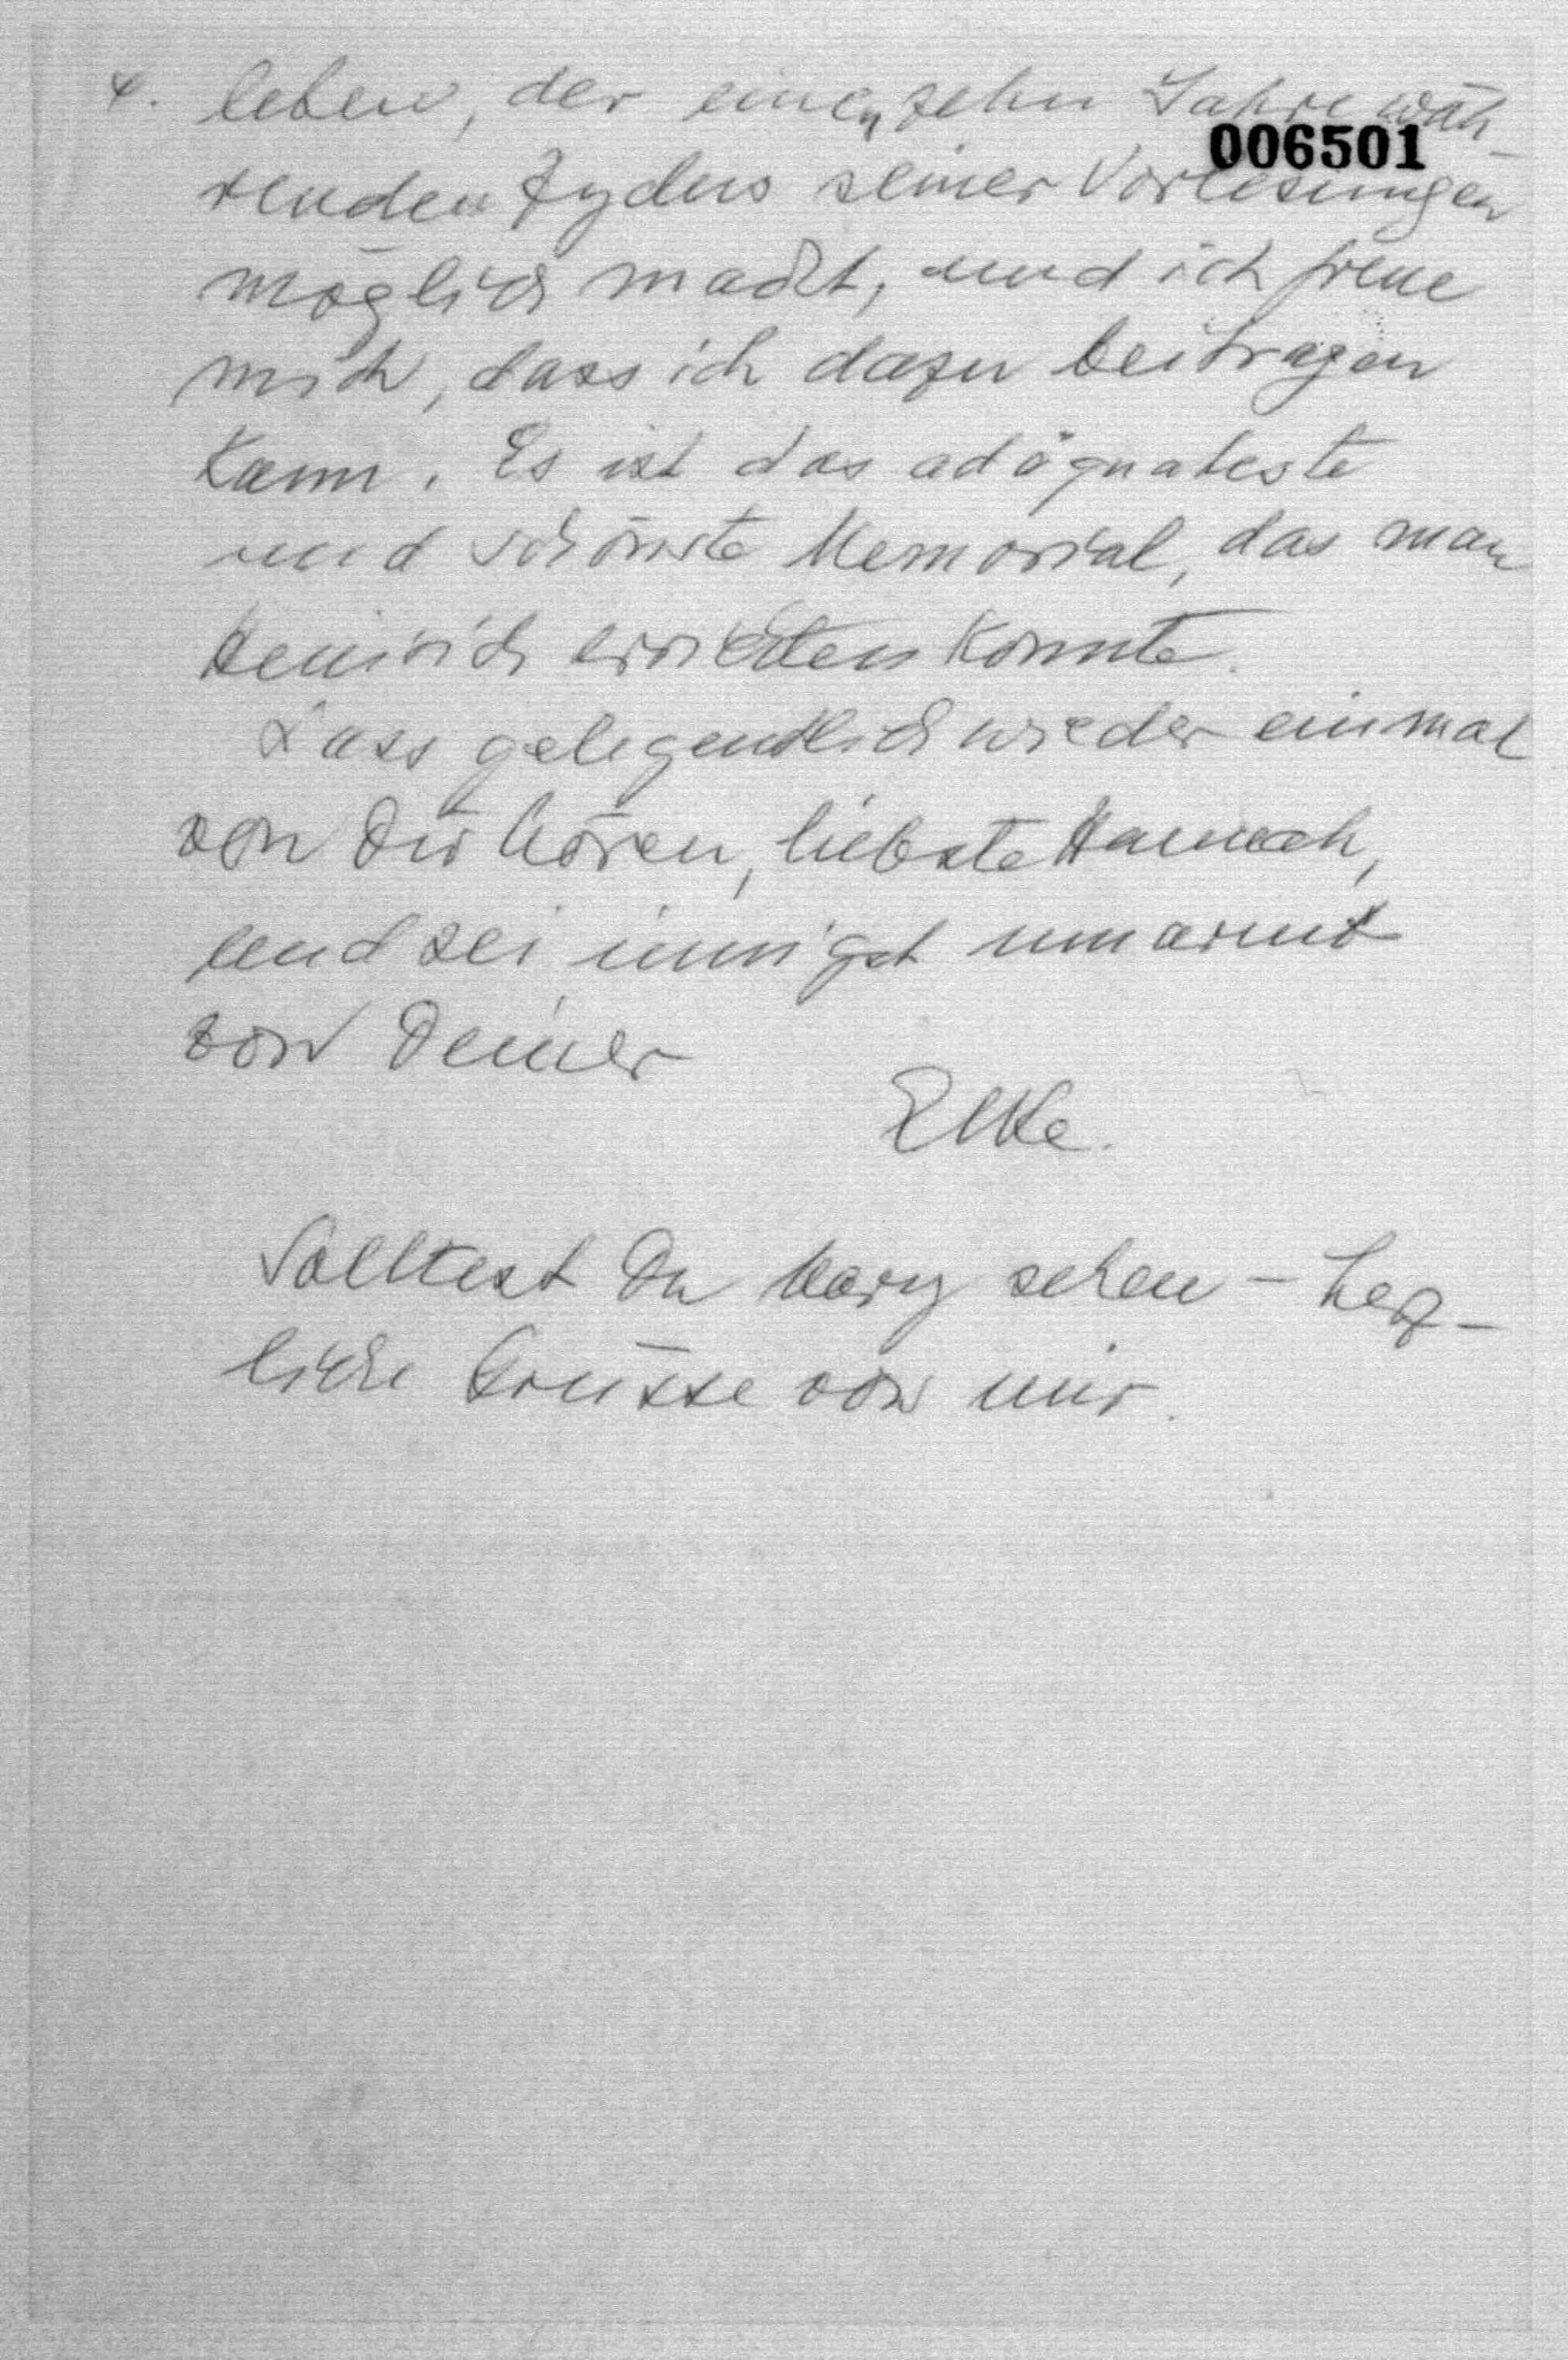 4. leben, der einen zehn Jahre wäh-
006501
renden Zyclus seiner Vorlesungen
möglich macht, und ich freue
mich, dass ich dazu beitragen
kann. Es ist das adäquateste
und schönste Memorial, das man
Heinrich errichten konnte.
Lass gelegentlich wieder einmal
von Dir hören, liebste Hannah,
und sei innigst umarmt
von Deiner
Elke.
Solltest Du Mary sehen - herz-
liche Grüsse von mir.